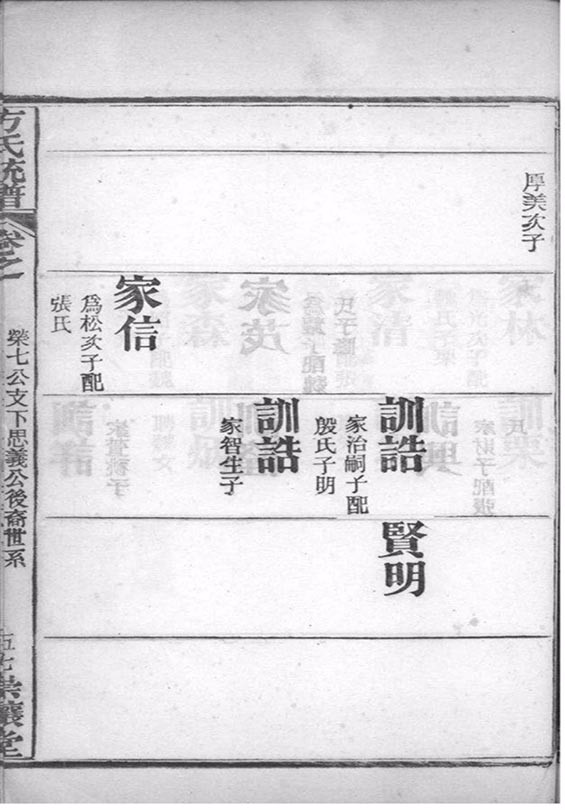 厚美次子
家信
爲松次子配
張氏
訓誥
家治嗣子配
殷氏子明
訓誥
家智生子
賢明
方氏統譜
卷之一
榮七公支下思義公後裔世系
五七
崇讓堂